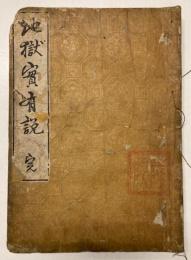 地獄實有説 完